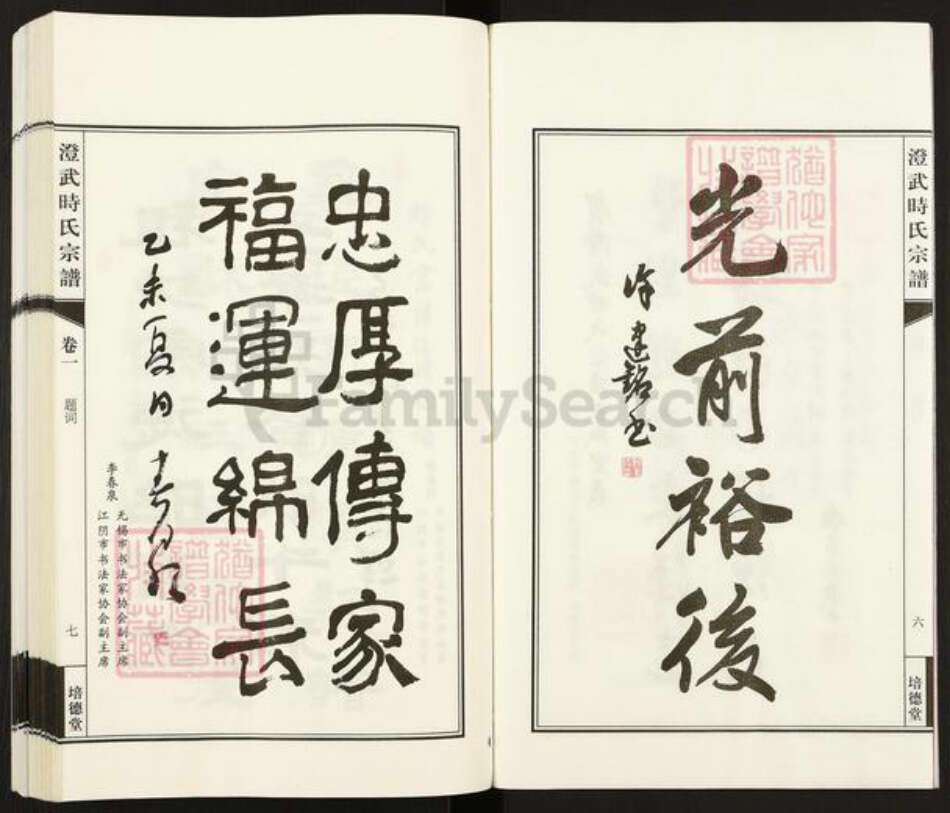 澄武時氏宗譜
光前裕後
徐建韜書
六
培德堂
忠厚傳家
福運綿長
乙未夏日 春泉
李春泉
无锡市书法家协会副主席
江阴市书法家协会副主席
澄武時氏宗譜
卷一
题词
七
培德堂
FamilySearch